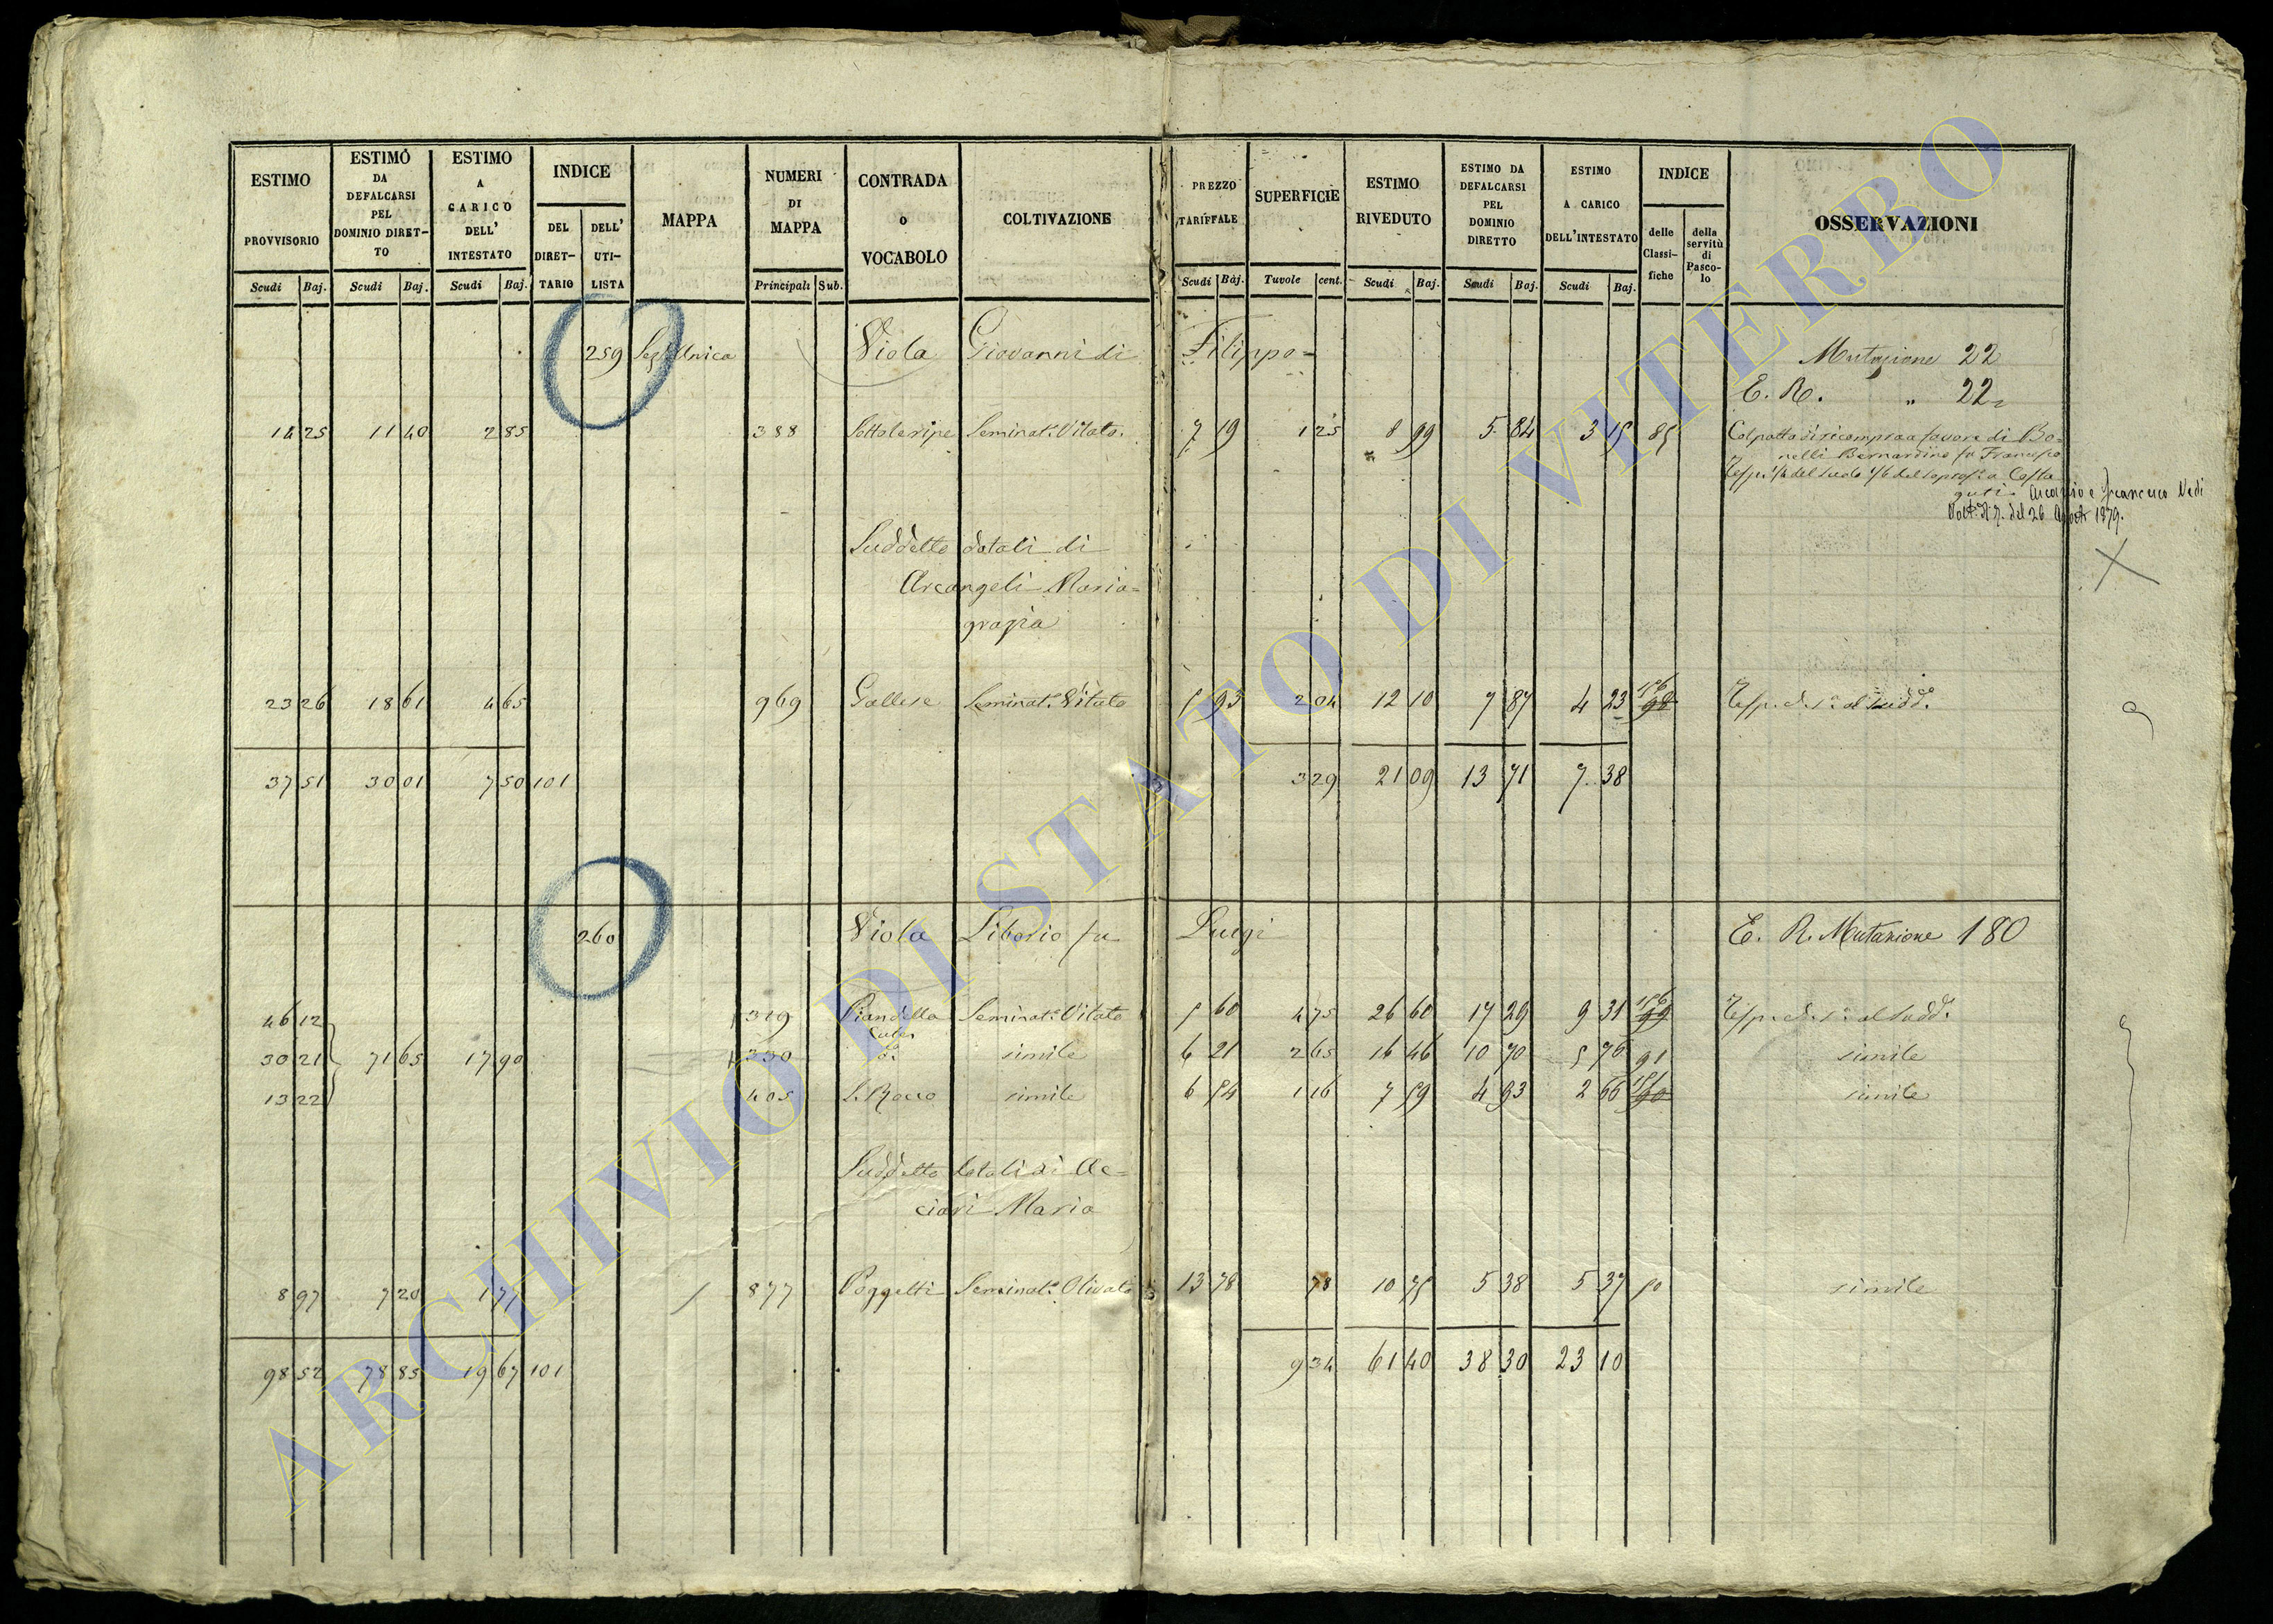 ESTIMO PROVVISORIO Scudi Baj.
ESTIMO DA DEFALCARSI PEL DOMINIO DIRET-TO Scudi Baj.
ESTIMO A CARICO DELL' INTESTATO Scudi Baj.
INDICE DEL DIRET-TARIO DELL' UTI-LISTA
MAPPA
NUMERI DI MAPPA Principali Sub.
CONTRADA o VOCABOLO
COLTIVAZIONE
PREZZO TARIFFALE Scudi Baj.
SUPERFICIE Tavole cent.
ESTIMO RIVEDUTO Scudi Baj.
ESTIMO DA DEFALCARSI PEL DOMINIO DIRETTO Scudi Baj.
ESTIMO A CARICO DELL'INTESTATO Scudi Baj.
INDICE delle Classi-fiche della servitù di Pasco-lo
OSSERVAZIONI
259 Sez. Unica Viola Giovanni di Filippo= Mutazione 22
E. R. " 22
14 25 11 40 2 85 388 Sottoleripe Seminat.o Vitato. 7 19 1 25 8 99 5 84 3 15 85 Col patto di ricompra a favore di Bo=
nelli Bernardino fu Francesco
Costa
guti Ascanio e Francesco Nedi
del 26 Agosto 1879.
Suddetto dotali di
Arcangeli Maria=
grazia
23 26 18 61 4 65 969 Gallese Seminat.o Vitato 5 93 2 04 12 10 7 87 4 23 156 98 Resp. d. s.a al sudd.o
37 51 30 01 7 50 101 3 29 21 09 13 71 7 38
260 Viola Liborio fu Luigi E. R. Mutazione 180
46 12 329 Piandella Seminat.o Vitato 5 60 4 75 26 60 17 29 9 31 156 99 Resp. d. s.a al sudd.o
30 21 71 65 17 90 330 d.o simile 6 21 2 65 16 46 10 70 5 76 91 simile
13 22 405 S. Rocco simile 6 54 1 16 7 59 4 93 2 66 90 simile
Suddetto dotali di Ac=
ciari Maria
8 97 7 20 1 77 877 Poggetti Seminat.o Olivato 13 78 78 10 75 5 38 5 37 50 simile
98 52 78 85 19 67 101 9 34 61 40 38 30 23 10
ARCHIVIO DI STATO DI VITERBO